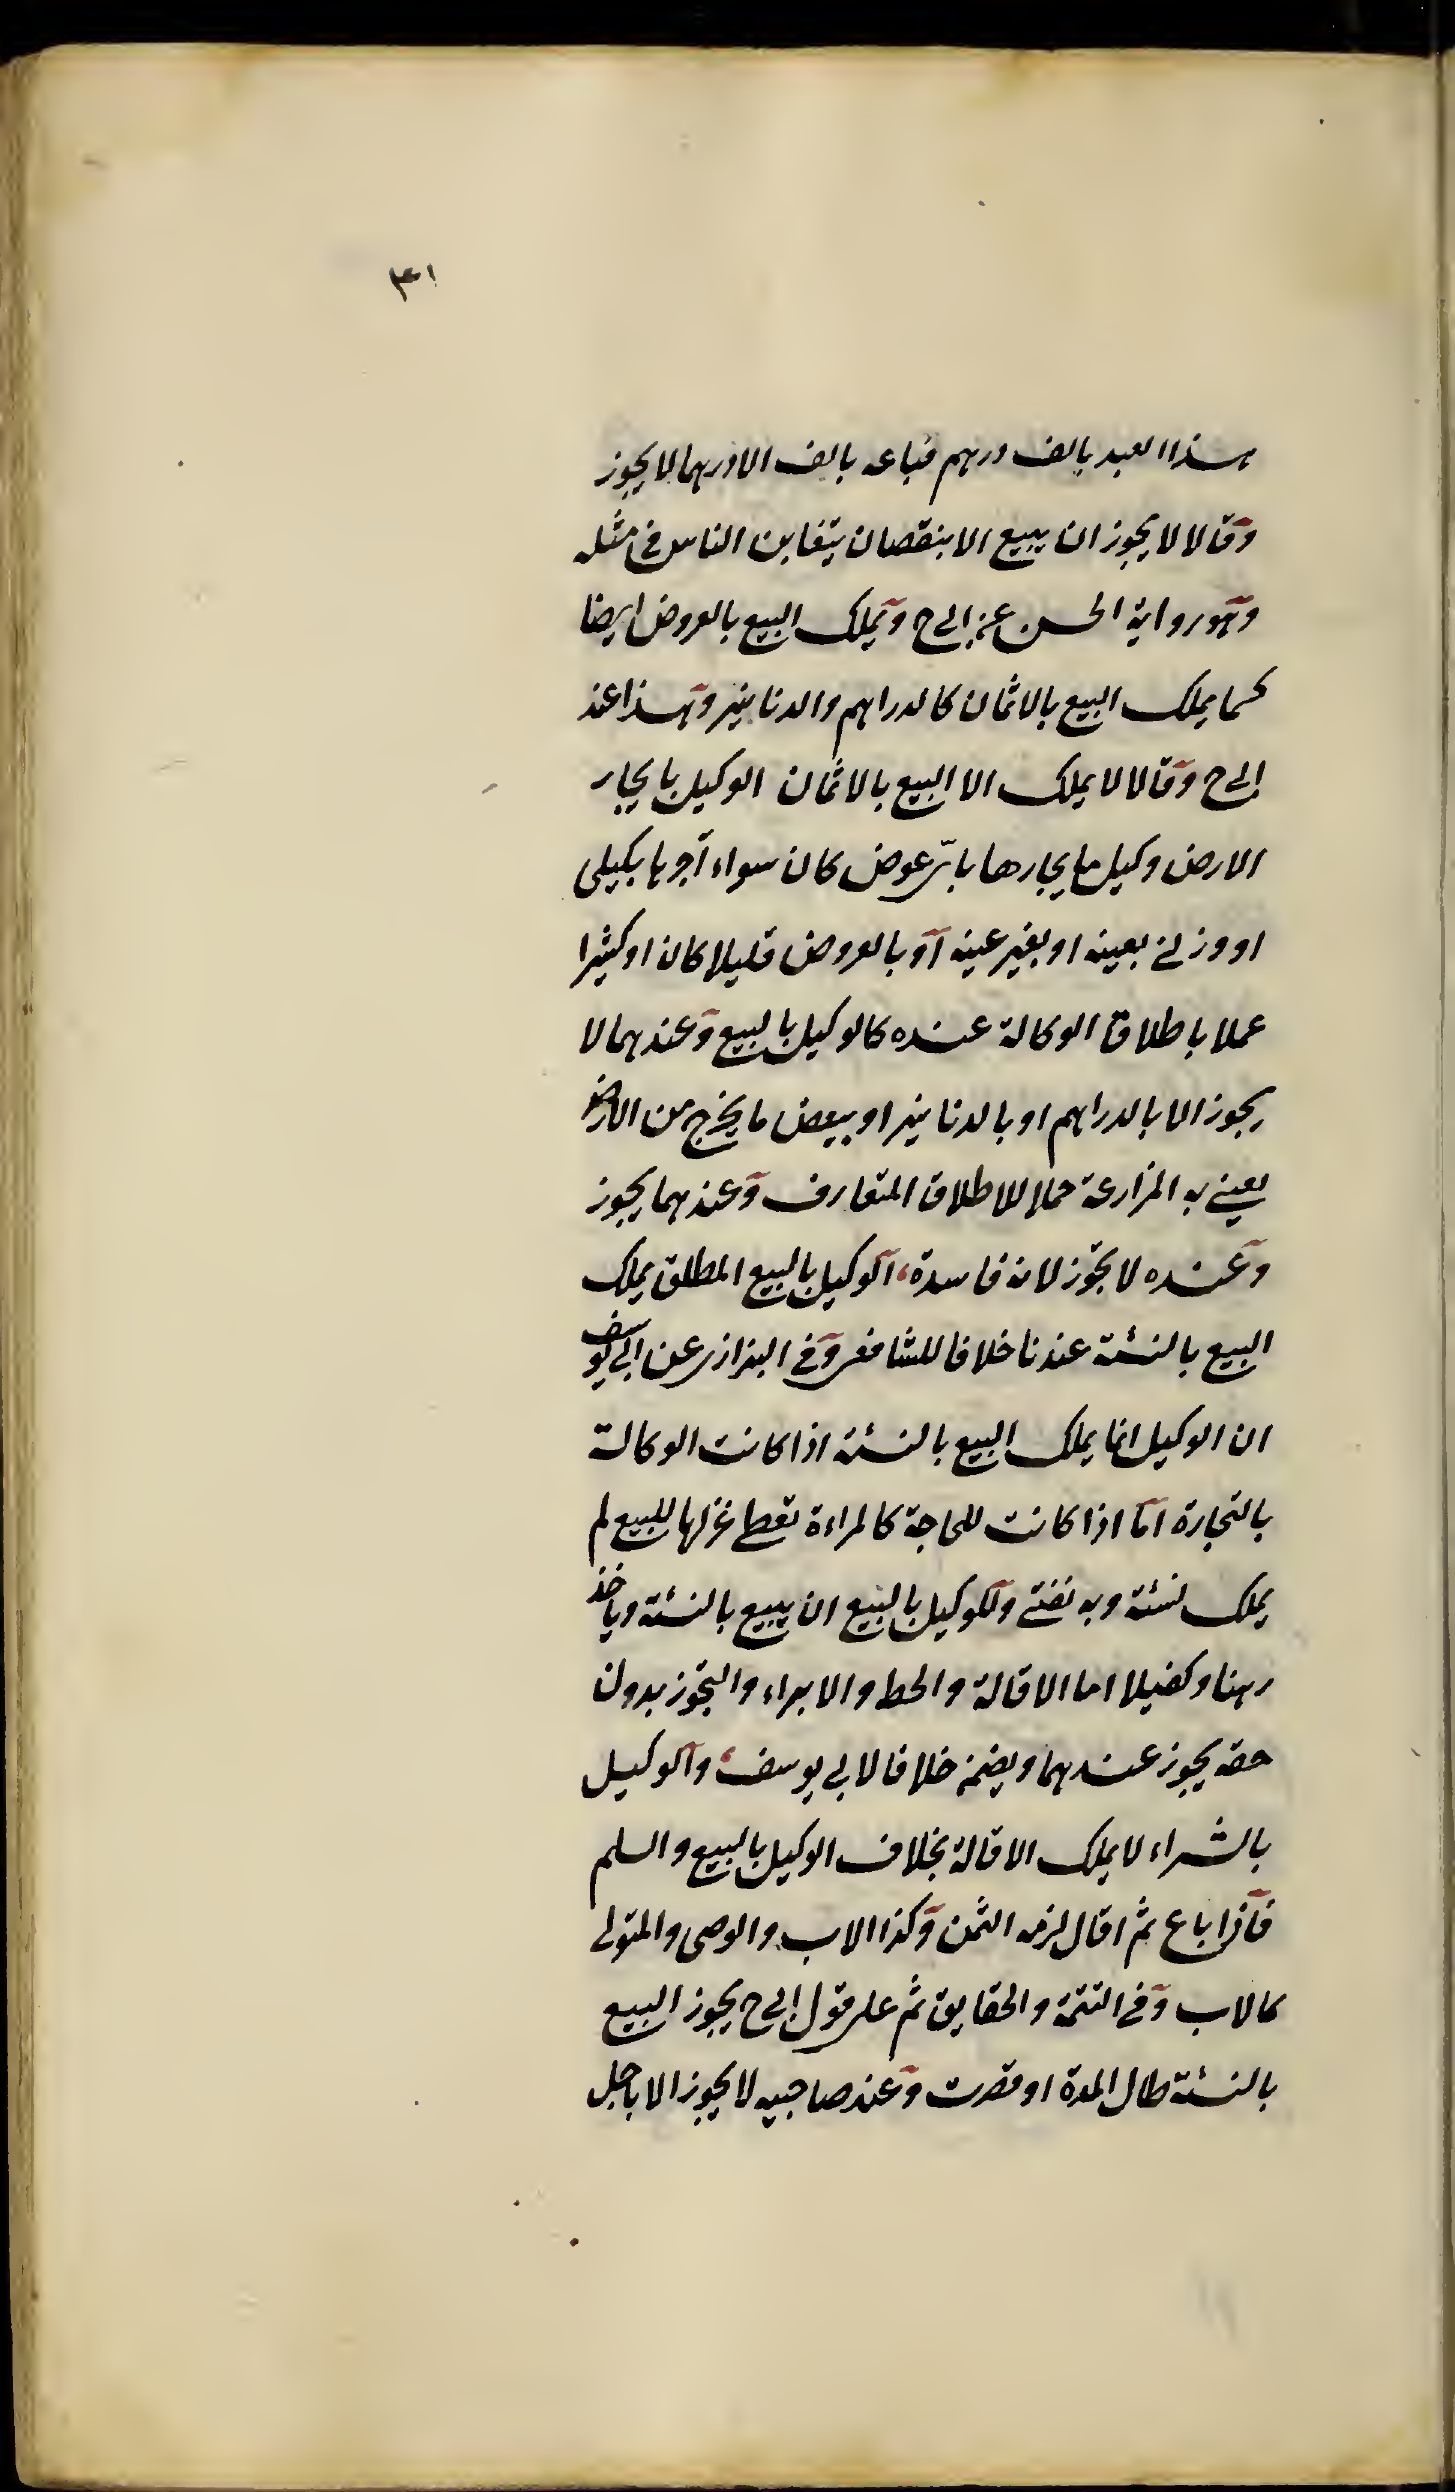 ١٣
هذا العبد بالف درهم فباعه بالف الا درهما لا يجوز
وقالا لا يجوز ان يبيع الا بنقصان يتغابن الناس في مثله
وهو رواية الحسن عن ابي ح ويملك البيع بالعروض ايضا
كما يملك البيع بالاثمان كالدراهم والدنانير وهذا عند
ابي ح وقالا لا يملك الا البيع بالاثمان الوكيل بايجار
الارض وكيل بايجارها باىّ عوض كان سواء آجرها بكيلى
او وزنى بعينه او بغير عينه او بالعروض قليلا كان او كثيرا
عملا باطلاق الوكالة عنده كالوكيل بالبيع وعندهما لا
يجوز الا بالدراهم او بالدنانير او ببعض ما يخرج من الارض
يعنى به المزارعة حملا للاطلاق المتعارف وعندهما يجوز
وعنده لا تجوز لانه فاسدة، الوكيل بالبيع المطلق يملك
البيع بالنسئة عندنا خلافا للشافعى وفى البزازى عن ابى يوسف
ان الوكيل انما يملك البيع بالنسئة اذا كانت الوكالة
بالتجارة امّا اذا كانت للحاجة كالمراءة تعطى غزلها للبيع لم
يملك نسئة وبه نفتى وللوكيل بالبيع ان يبيع بالنسئة وياخذ
رهنا وكفيلا اما الاقالة والحط والابراء والتجوز بدون
حقه يجوز عندهما ويضمن خلافا لابى يوسف، والوكيل
بالشراء لا يملك الاقالة بخلاف الوكيل بالبيع والسلم
فاذا باع ثم اقال لزمه الثمن وكذا الاب والوصى والمتولى
كالاب وفى التتمة والحقايق ثم على قول ابي ح يجوز البيع
بالنسئة طال المدة او قصرت وعند صاحبيه لا يجوز الا باجل